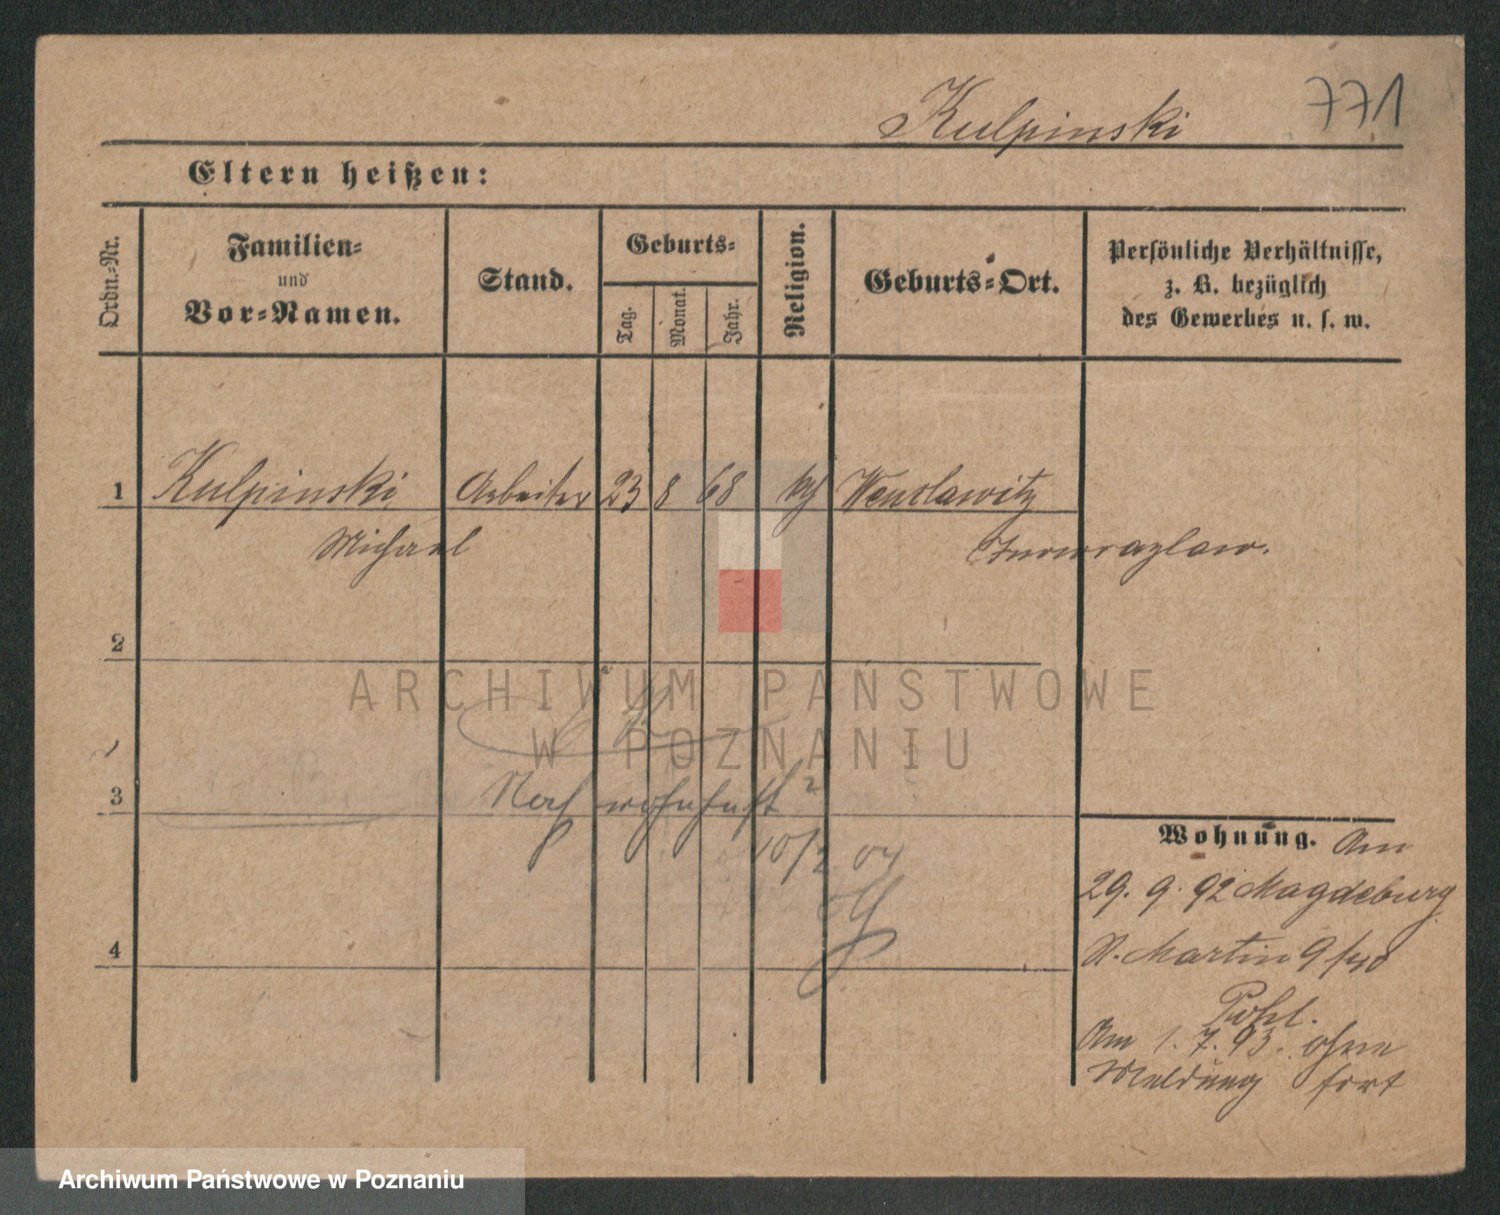 771
Kulpinski
Eltern heißen:
Ordn.-Nr.
Familien- und Vor-Namen.
Stand.
Geburts-
Tag.
Monat.
Jahr.
Religion.
Geburts-Ort.
Persönliche Verhältnisse,
z. B. bezüglich
des Gewerbes u. s. w.
1 Kulpinski Arbeiter 23 8 68 kth Wenslawitz
Michael Inowrazlaw.
2
ARCHIWUM PAŃSTWOWE
W POZNANIU
Noch wohnhaft?
3
10/2 04
Wohnung. Am
29. 9. 92 Magdeburg
4
St. Martin 9
Pohl.
Am 1. 7. 93. ohne
Meldung fort
Archiwum Państwowe w Poznaniu